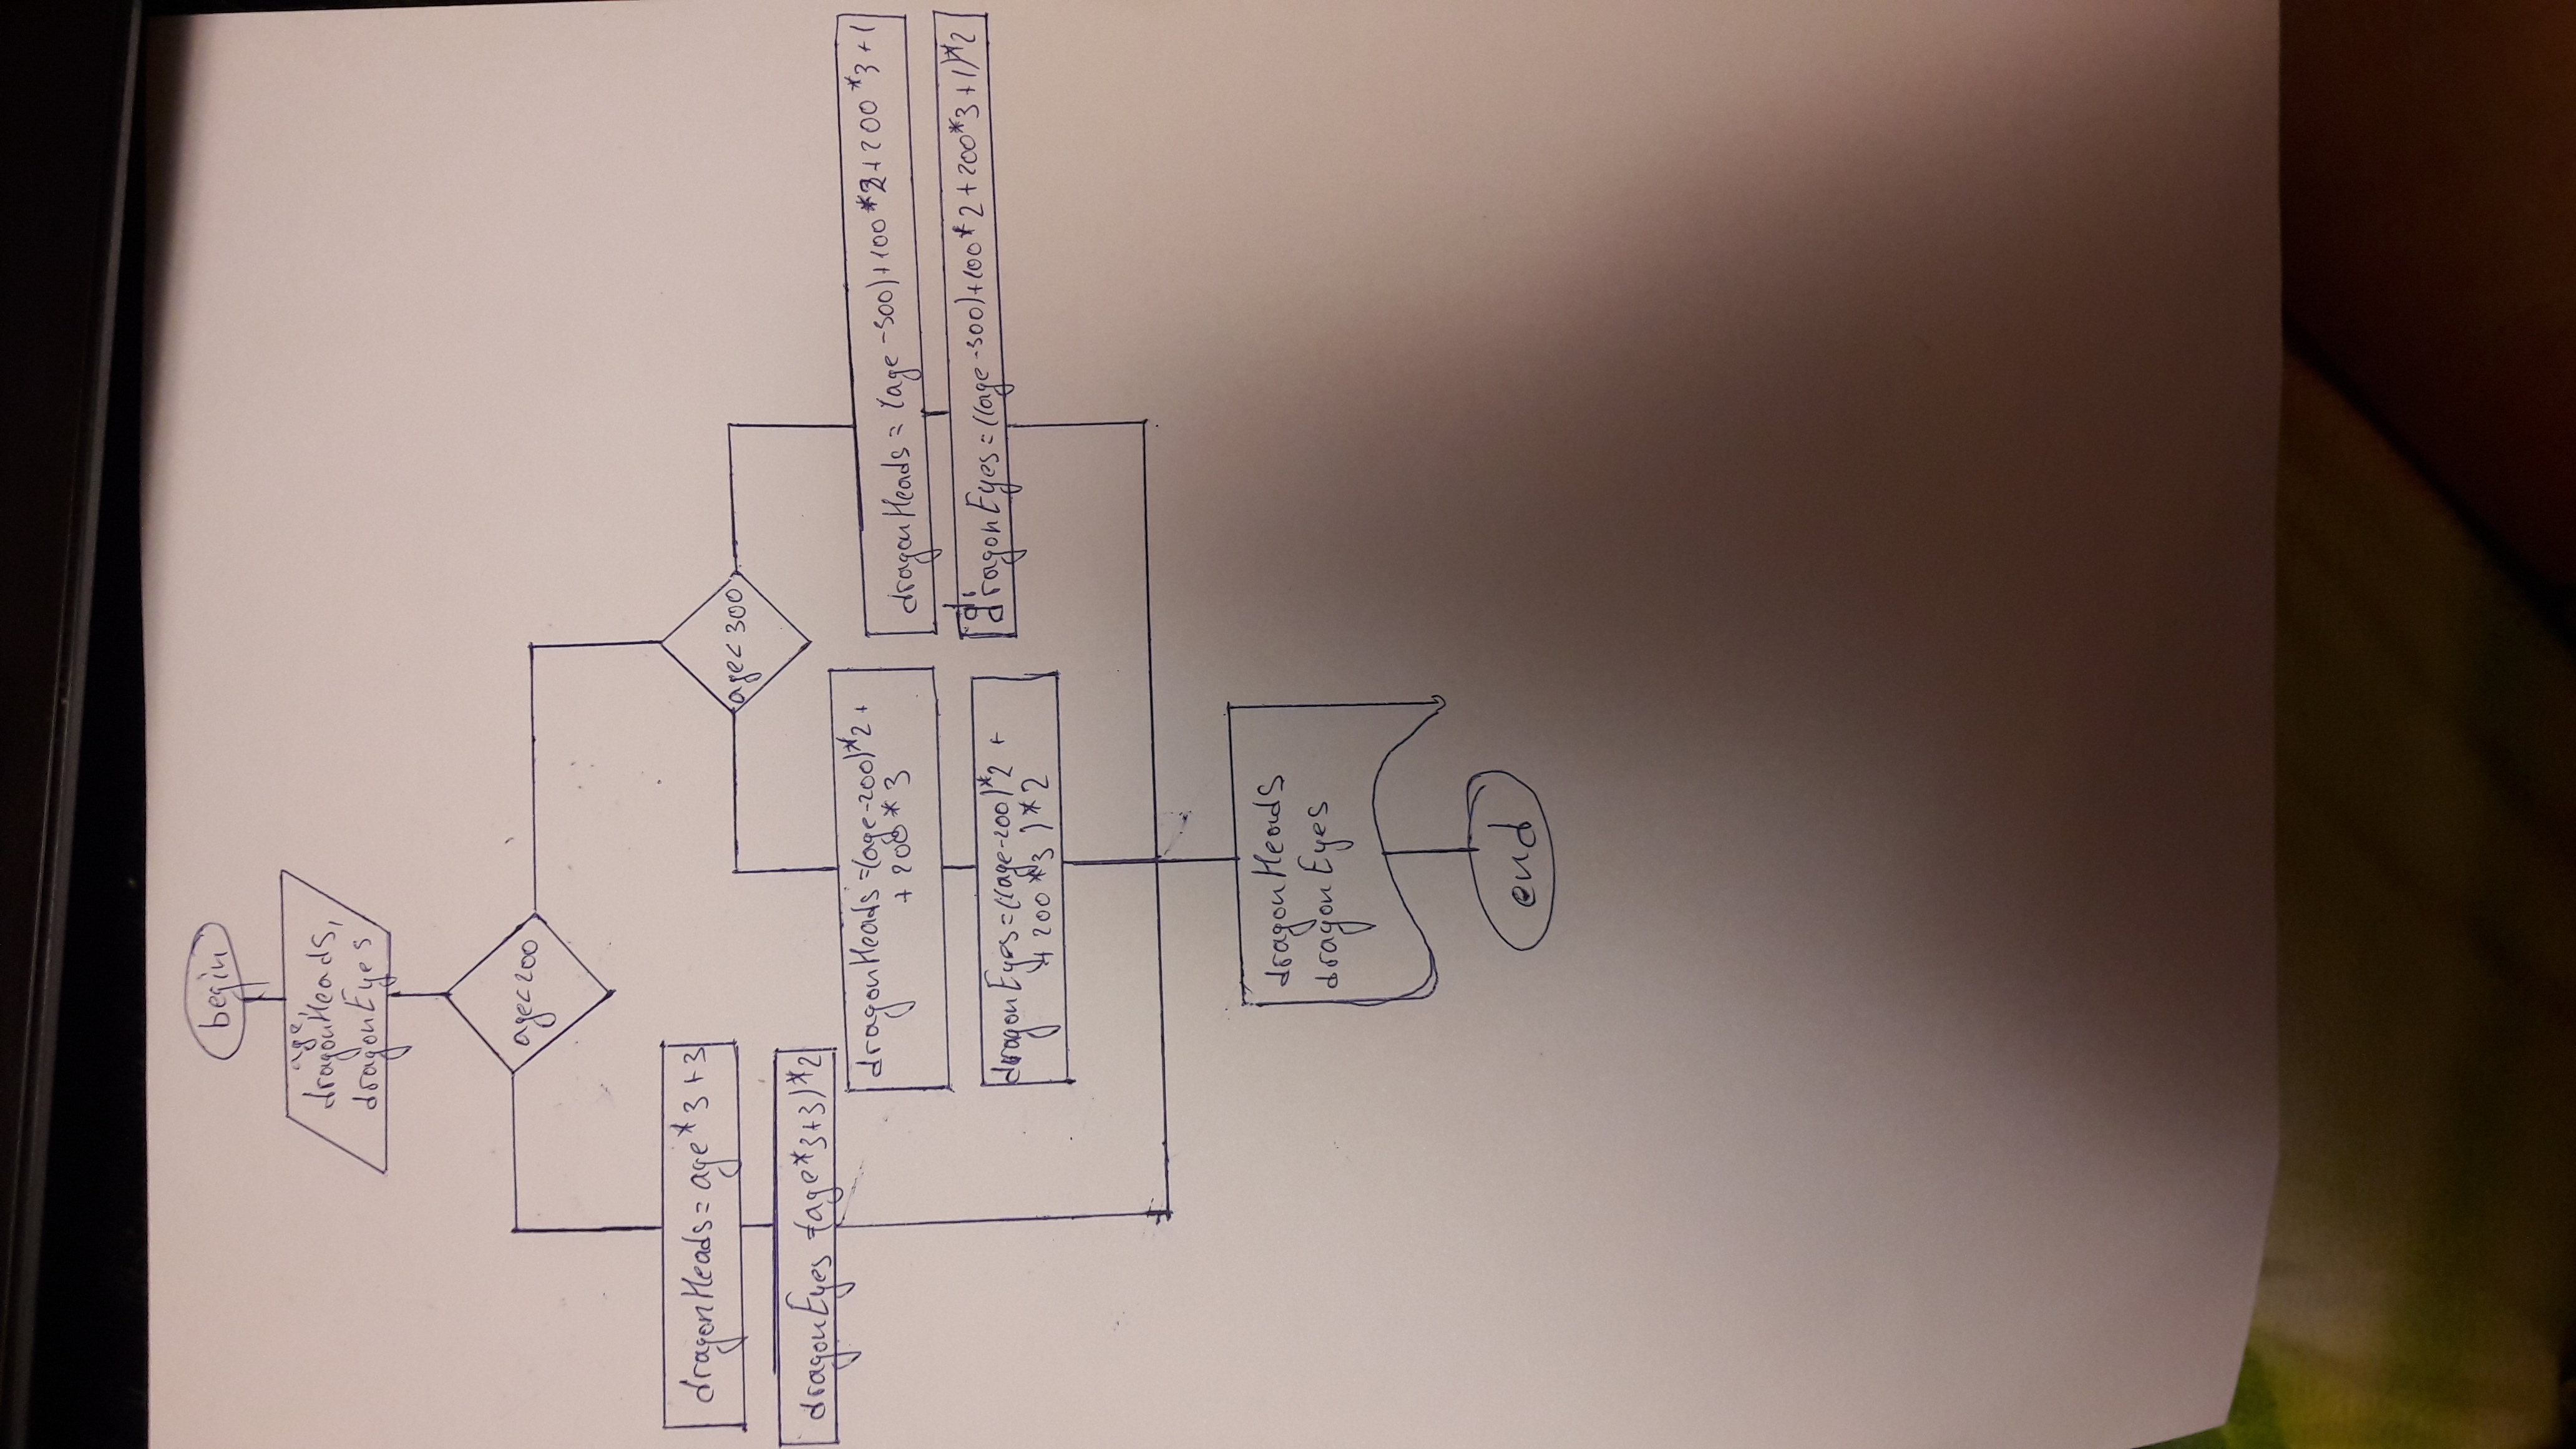 begin
age,
dragonHeads,
dragonEyes
age<200
dragonHeads=age*3+3
dragonEyes=(age*3+3)*2
age<300
dragonHeads=(age-200)*2+
+200*3
dragonEyes=((age-200)*2+
+200*3)*2
dragonHeads=(age-300)+100*2+200*3+1
dragonEyes=((age-300)+100*2+200*3+1)*2
dragonHeads
dragonEyes
end